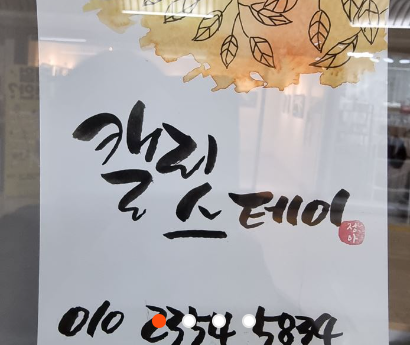 캘리
스테이
정아
010 2354 5834